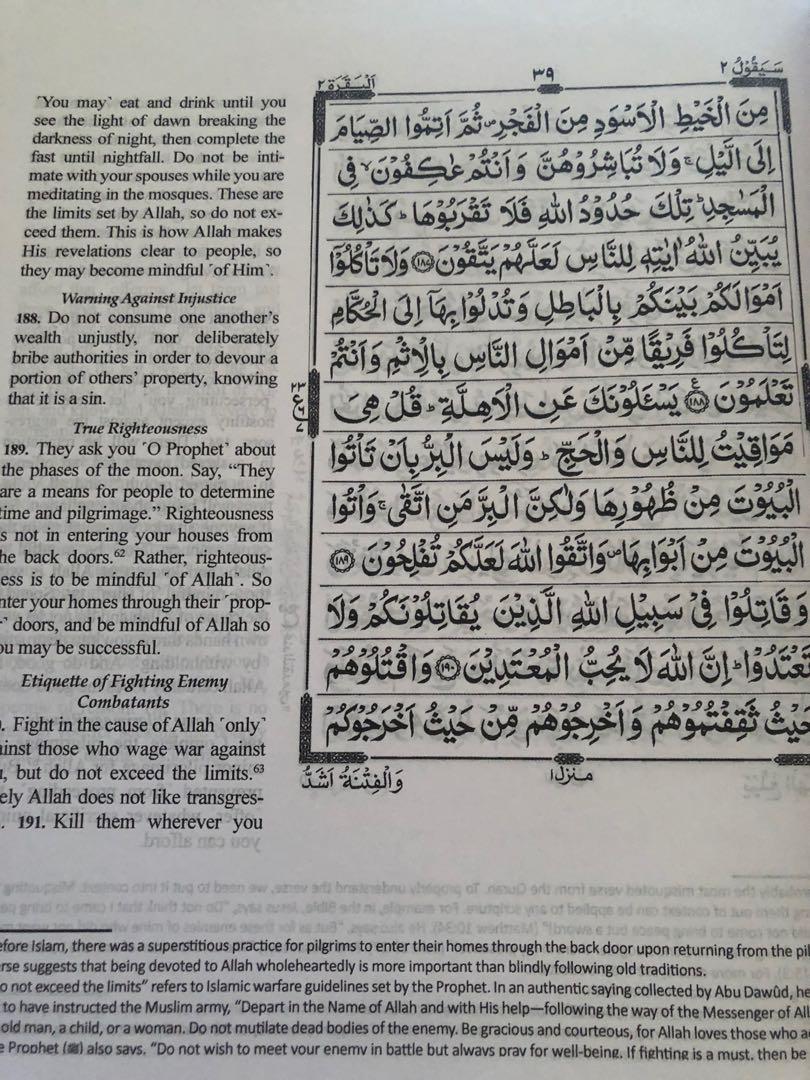 ˹You may˺ eat and drink until you
see the light of dawn breaking the
darkness of night, then complete the
fast until nightfall. Do not be inti-
mate with your spouses while you are
meditating in the mosques. These are
the limits set by Allah, so do not ex-
ceed them. This is how Allah makes
His revelations clear to people, so
they may become mindful ˹of Him˺.
Warning Against Injustice
188. Do not consume one another's
wealth unjustly, nor deliberately
bribe authorities in order to devour a
portion of others' property, knowing
that it is a sin.
True Righteousness
189. They ask you ˹O Prophet˺ about
the phases of the moon. Say, “They
are a means for people to determine
time and pilgrimage.” Righteousness
s not in entering your houses from
he back doors.⁶² Rather, righteous-
ess is to be mindful ˹of Allah˺. So
nter your homes through their ˹prop-
˺ doors, and be mindful of Allah so
ou may be successful.
Etiquette of Fighting Enemy
Combatants
. Fight in the cause of Allah ˹only˺
ainst those who wage war against
, but do not exceed the limits.⁶³
ely Allah does not like transgres-
. 191. Kill them wherever you
سَيَقُوْلُ ٢ ٣٩ اَلْبَقَرَة ٢
مِنَ الْخَيْطِ الْاَسْوَدِ مِنَ الْفَجْرِ ۪ ثُمَّ اَتِمُّوا الصِّيَامَ
اِلَى الَّيْلِ ۚ وَلَا تُبَاشِرُوْهُنَّ وَاَنْتُمْ عٰكِفُوْنَ ۙ فِى
الْمَسٰجِدِ ؕ تِلْكَ حُدُوْدُ اللّٰهِ فَلَا تَقْرَبُوْهَا ؕ كَذٰلِكَ
يُبَيِّنُ اللّٰهُ اٰيٰتِهٖ لِلنَّاسِ لَعَلَّهُمْ يَتَّقُوْنَ ۝١٨٧ وَلَا تَاْكُلُوْۤا
اَمْوَالَكُمْ بَيْنَكُمْ بِالْبَاطِلِ وَتُدْلُوْا بِهَاۤ اِلَى الْحُكَّامِ
لِتَاْكُلُوْا فَرِيْقًا مِّنْ اَمْوَالِ النَّاسِ بِالْاِثْمِ وَاَنْتُمْ
تَعْلَمُوْنَ ۝١٨٨ يَسْـَٔلُوْنَكَ عَنِ الْاَهِلَّةِ ؕ قُلْ هِىَ
مَوَاقِيْتُ لِلنَّاسِ وَالْحَجِّ ؕ وَلَيْسَ الْبِرُّ بِاَنْ تَاْتُوا
الْبُيُوْتَ مِنْ ظُهُوْرِهَا وَلٰكِنَّ الْبِرَّ مَنِ اتَّقٰى ۚ وَاْتُوا
الْبُيُوْتَ مِنْ اَبْوَابِهَا ۪ وَاتَّقُوا اللّٰهَ لَعَلَّكُمْ تُفْلِحُوْنَ ۝١٨٩
وَقَاتِلُوْا فِىْ سَبِيْلِ اللّٰهِ الَّذِيْنَ يُقَاتِلُوْنَكُمْ وَلَا
تَعْتَدُوْا ؕ اِنَّ اللّٰهَ لَا يُحِبُّ الْمُعْتَدِيْنَ ۝١٩٠ وَاقْتُلُوْهُمْ
حَيْثُ ثَقِفْتُمُوْهُمْ وَاَخْرِجُوْهُمْ مِّنْ حَيْثُ اَخْرَجُوْكُمْ
٢٣
ع
٦
٧
منزل ١
وَالْفِتْنَةُ اَشَدُّ
efore Islam, there was a superstitious practice for pilgrims to enter their homes through the back door upon returning from the pil
rse suggests that being devoted to Allah wholeheartedly is more important than blindly following old traditions.
o not exceed the limits” refers to Islamic warfare guidelines set by the Prophet. In an authentic saying collected by Abu Dawûd, he
to have instructed the Muslim army, “Depart in the Name of Allah and with His help—following the way of the Messenger of All
old man, a child, or a woman. Do not mutilate dead bodies of the enemy. Be gracious and courteous, for Allah loves those who a
e Prophet (ﷺ) also says, “Do not wish to meet your enemy in battle but always pray for well-being. If fighting is a must, then be